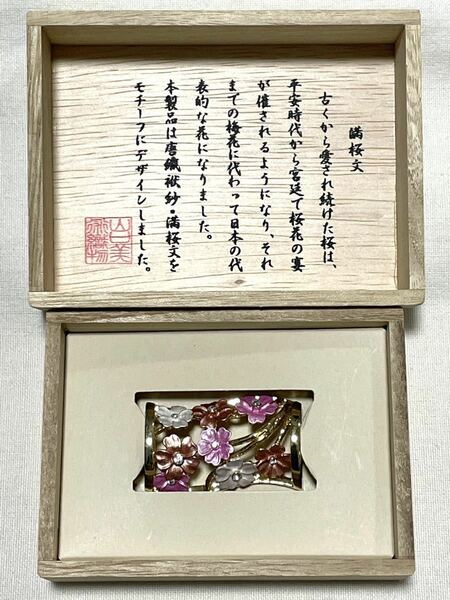 満桜文
古くから愛され続けた桜は、
平安時代から宮廷で桜花の宴
が催されるようになり、それ
までの梅花に代わって日本の代
表的な花になりました。
本製品は唐織袱紗・満桜文を
モチーフにデザインしました。